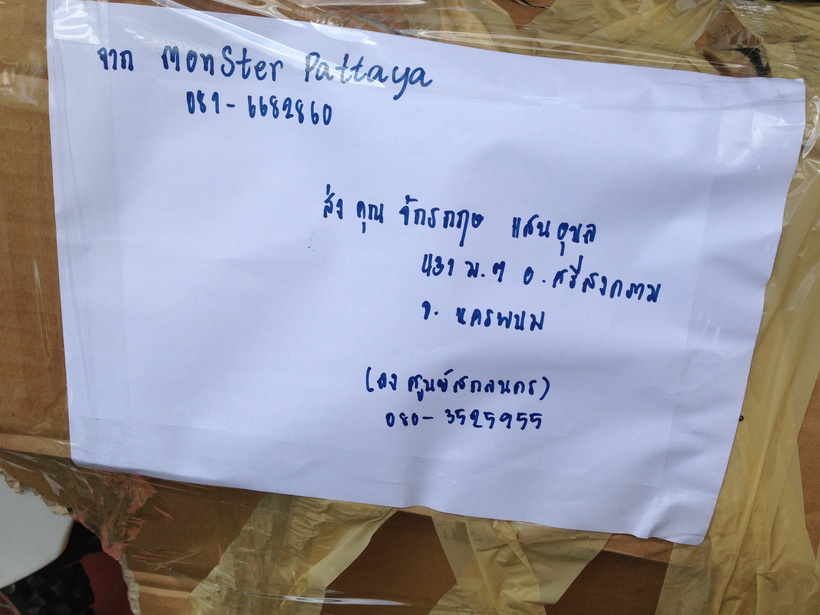 จาก Monster Pattaya
081-6682860
ส่ง คุณ จักรกฤษ แสนอุบล
431 ม.7 อ.ศรีสงคราม
จ. นครพนม
(ลง ศูนย์สกลนคร)
080-3525955